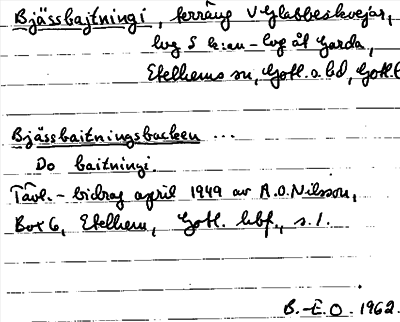 Bjässbajtningi, terräng V Glabbeskvejar,
lvg S k:an - lvg åt Garda,
Etelhems sn, Gotl. s. hd, Gotl.
Bjässbaitningsbacken ...
Do baitningi.
Tävl. - bidrag april 1949 av A.O. Nilsson,
Box 6, Etelhem, Gotl. hbf., s. 1.
B.-E.O. 1962.